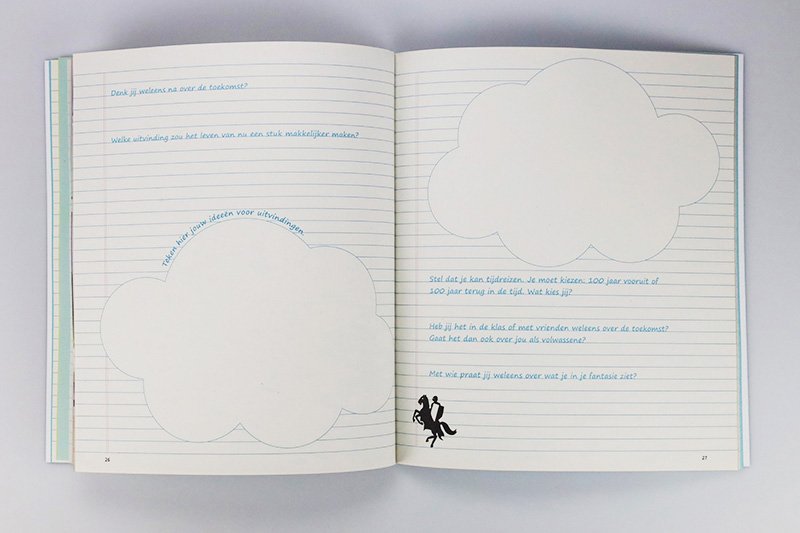 Denk jij weleens na over de toekomst?
Welke uitvinding zou het leven van nu een stuk makkelijker maken?
Teken hier jouw ideeën voor uitvindingen.
26
Stel dat je kan tijdreizen. Je moet kiezen: 100 jaar vooruit of
100 jaar terug in de tijd. Wat kies jij?
Heb jij het in de klas of met vrienden weleens over de toekomst?
Gaat het dan ook over jou als volwassene?
Met wie praat jij weleens over wat je in je fantasie ziet?
27